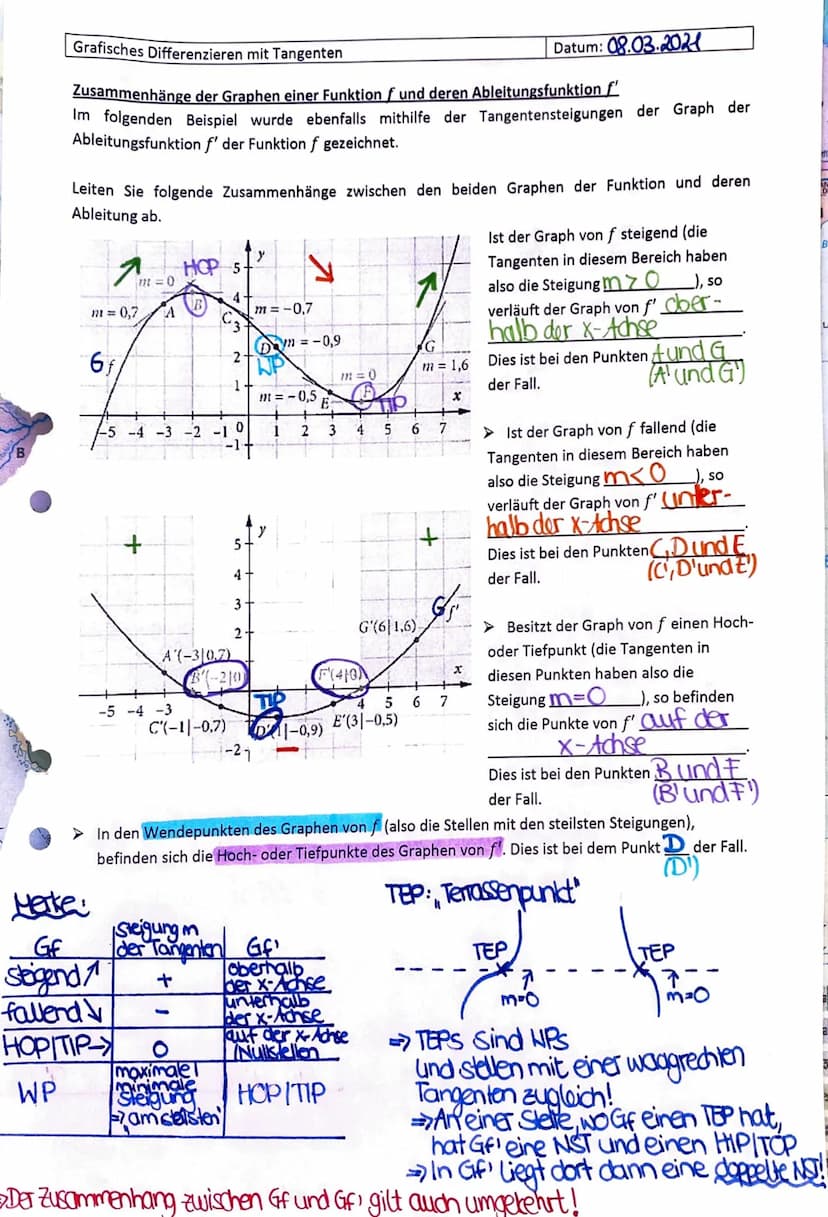 Grafisches Differenzieren mit Tangenten
Datum: 08.03.2021
Zusammenhänge der Graphen einer Funktion f und deren Ableitungsfunktion f'
Im folgenden Beispiel wurde ebenfalls mithilfe der Tangentensteigungen der Graph der
Ableitungsfunktion f' der Funktion f gezeichnet.
Leiten Sie folgende Zusammenhänge zwischen den beiden Graphen der Funktion und deren
Ableitung ab.
HOP
5
y
m = 0
4
m = 0,7
A
B
C
3
m = −0,7
Gf
2
D
m = −0,9
WP
G
1
m = 0
m = 1,6
m = −0,5
E
F
TIP
x
−5 −4 −3 −2 −1 0 1 2 3 4 5 6 7
−1
+
+
5
y
4
3
2
G'(6|1,6)
Gf'
A'(−3|0,7)
B'(−2|0)
F'(4|0)
x
TIP
−5 −4 −3
4 5 6 7
C'(−1|−0,7)
D'(1|−0,9)
E'(3|−0,5)
−2
−
Ist der Graph von f steigend (die
Tangenten in diesem Bereich haben
also die Steigung m>0), so
verläuft der Graph von f' ober-
halb der x-Achse.
Dies ist bei den Punkten A und G
der Fall. (A' und G')
➢ Ist der Graph von f fallend (die
Tangenten in diesem Bereich haben
also die Steigung m<0), so
verläuft der Graph von f' unter-
halb der x-Achse.
Dies ist bei den Punkten C, D und E
der Fall. (C', D' und E')
➢ Besitzt der Graph von f einen Hoch-
oder Tiefpunkt (die Tangenten in
diesen Punkten haben also die
Steigung m=0), so befinden
sich die Punkte von f' auf der
x-Achse.
Dies ist bei den Punkten B und F
der Fall. (B' und F')
➢ In den Wendepunkten des Graphen von f (also die Stellen mit den steilsten Steigungen),
befinden sich die Hoch- oder Tiefpunkte des Graphen von f'. Dies ist bei dem Punkt D der Fall.
(D')
Merke:
Gf
Steigung m
der Tangenten
Gf'
steigend ↗
+
oberhalb
der x-Achse
fallend ↘
−
unterhalb
der x-Achse
HOP|TIP →
0
auf der x-Achse
/Nullstellen
WP
maximale|
minimale
Steigung
→ "am steilsten"
HOP|TIP
TEP: „Terrassenpunkt"
TEP
m=0
TEP
m=0
⇒ TEPs sind WPs
und stellen mit einer waagrechten
Tangenten zugleich!
⇒ An einer Stelle, wo Gf einen TEP hat,
hat Gf' eine NST und einen HIP|TOP
⇒ In Gf' liegt dort dann eine doppelte NST!
⇒ Der Zusammenhang zwischen Gf und Gf' gilt auch umgekehrt!
B